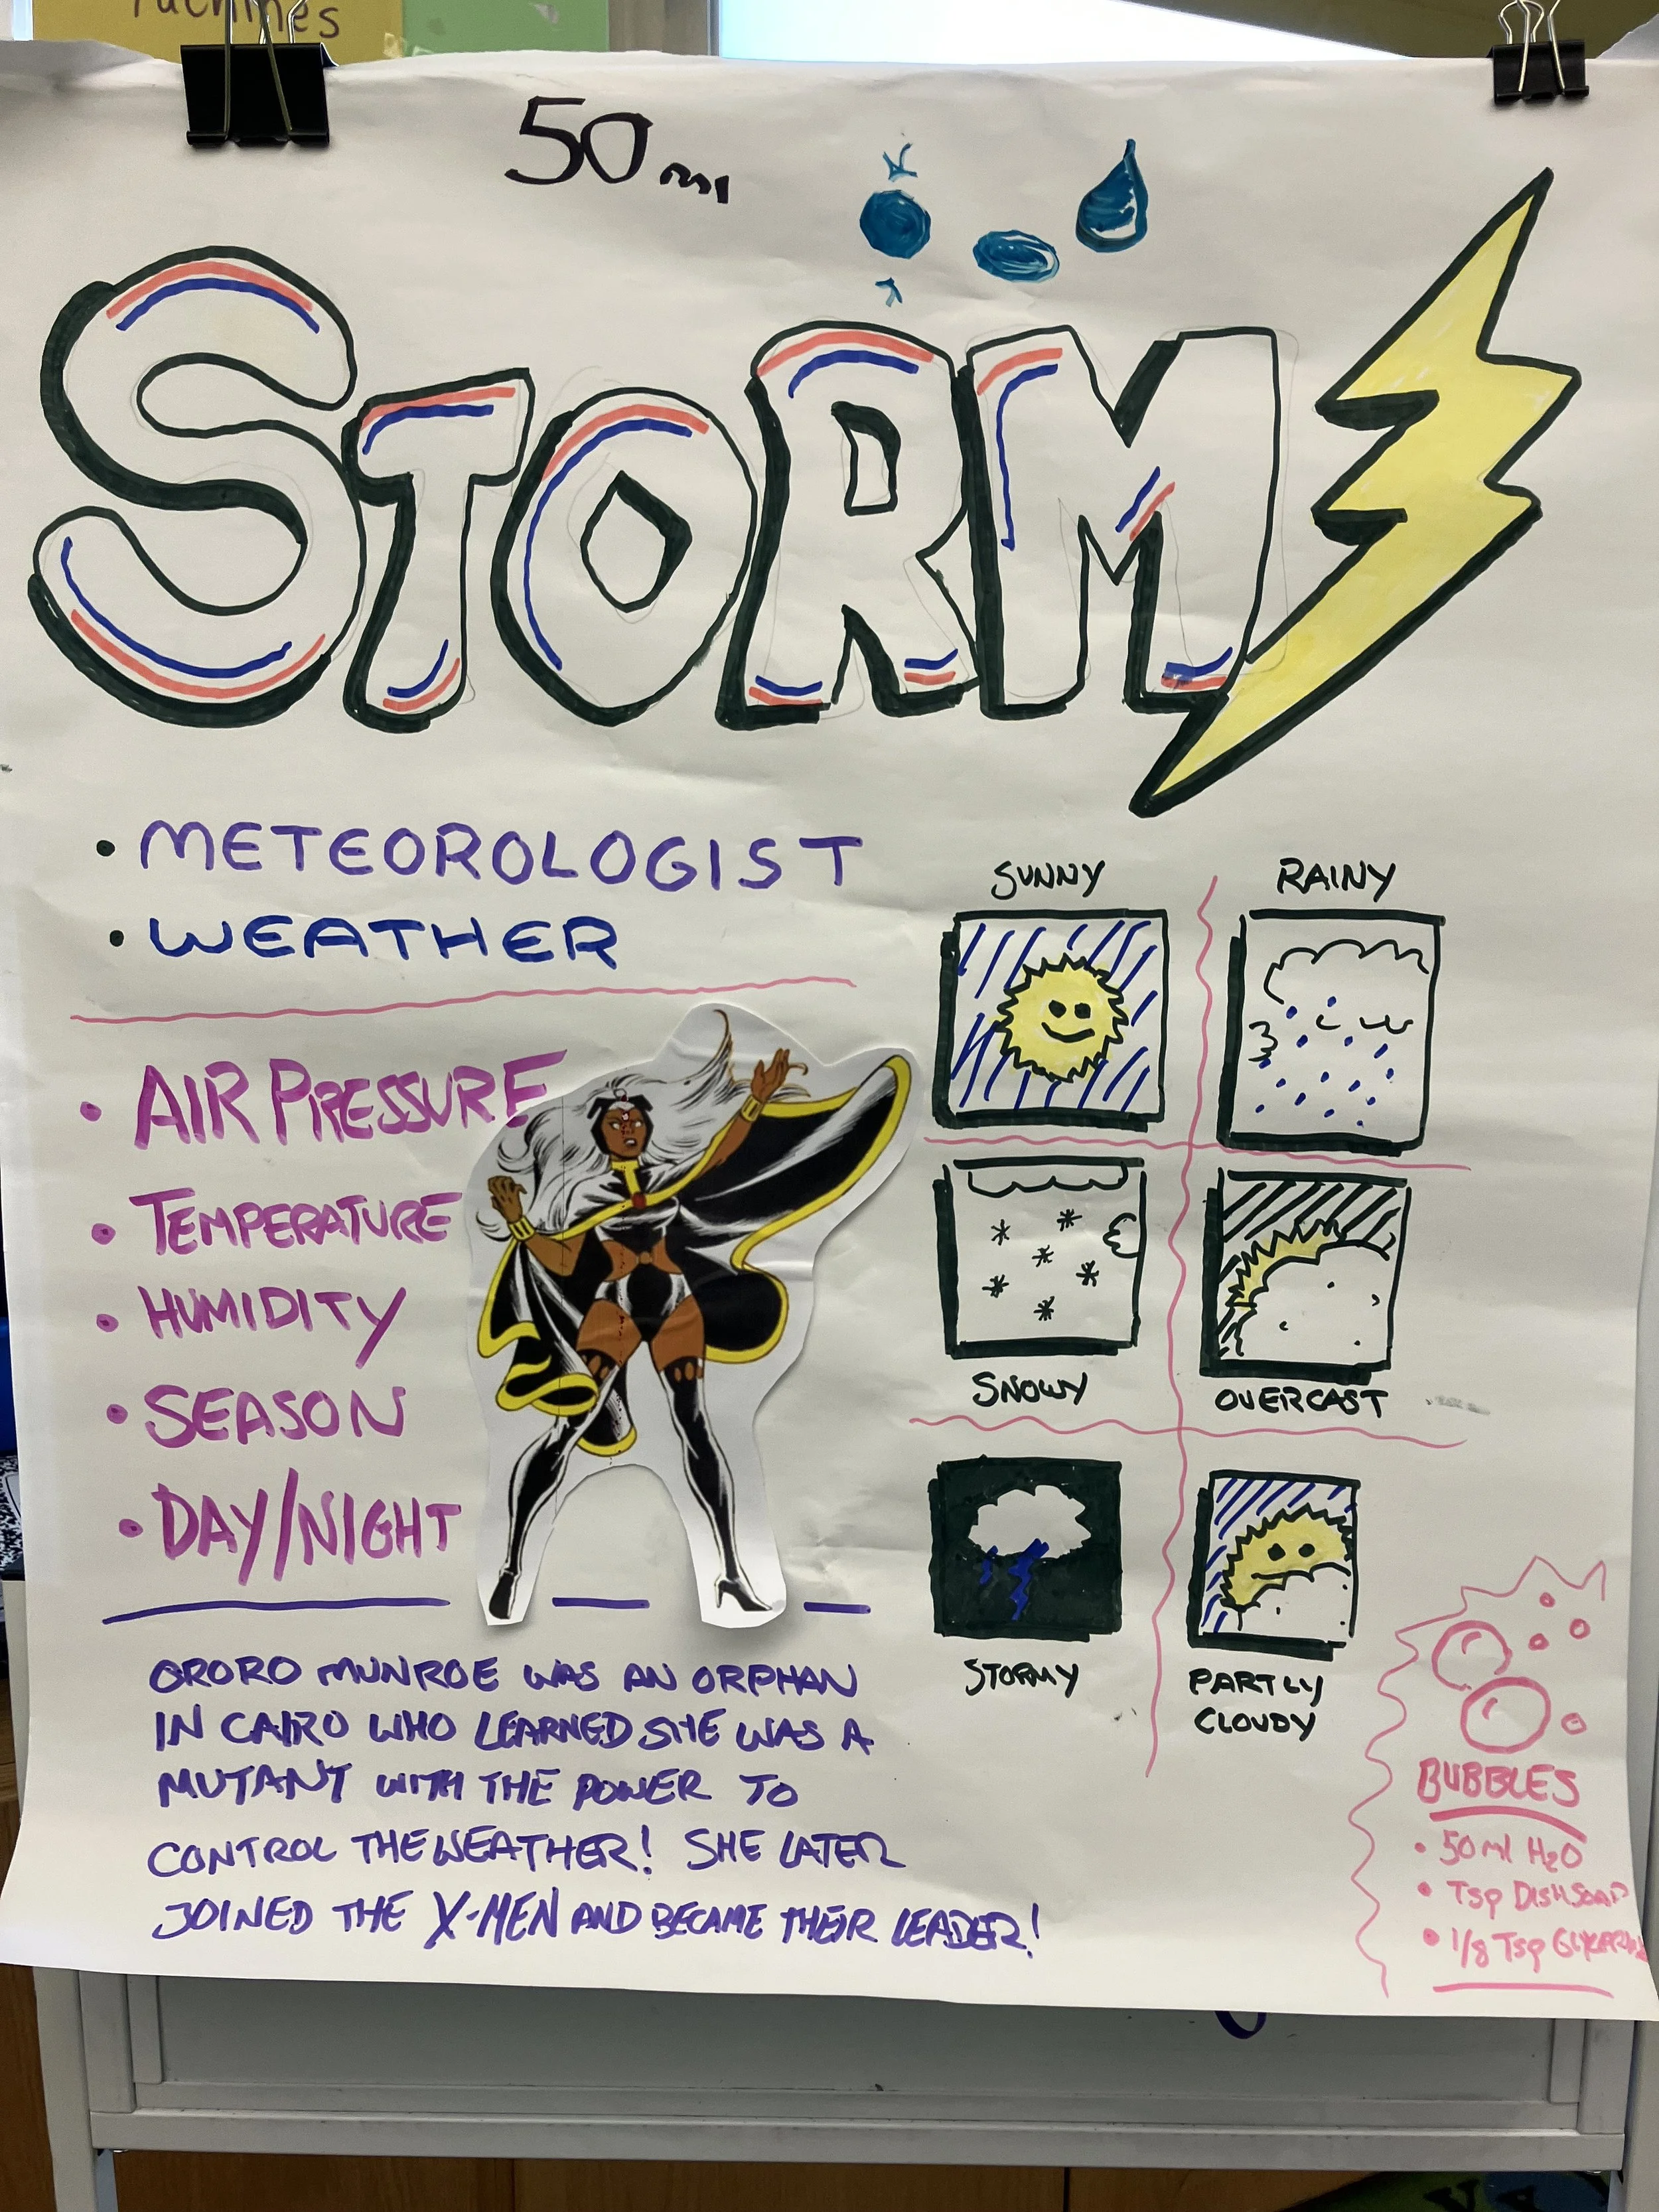 machines
50ml
STORM
• METEOROLOGIST
• WEATHER
• AIR PRESSURE
• TEMPERATURE
• HUMIDITY
• SEASON
• DAY/NIGHT
SUNNY
RAINY
SNOWY
OVERCAST
STORMY
PARTLY
CLOUDY
ORORO MUNROE WAS AN ORPHAN
IN CAIRO WHO LEARNED SHE WAS A
MUTANT WITH THE POWER TO
CONTROL THE WEATHER! SHE LATER
JOINED THE X-MEN AND BECAME THEIR LEADER!
BUBBLES
• 50ml H2O
• Tsp DISHSOAP
• 1/8 Tsp